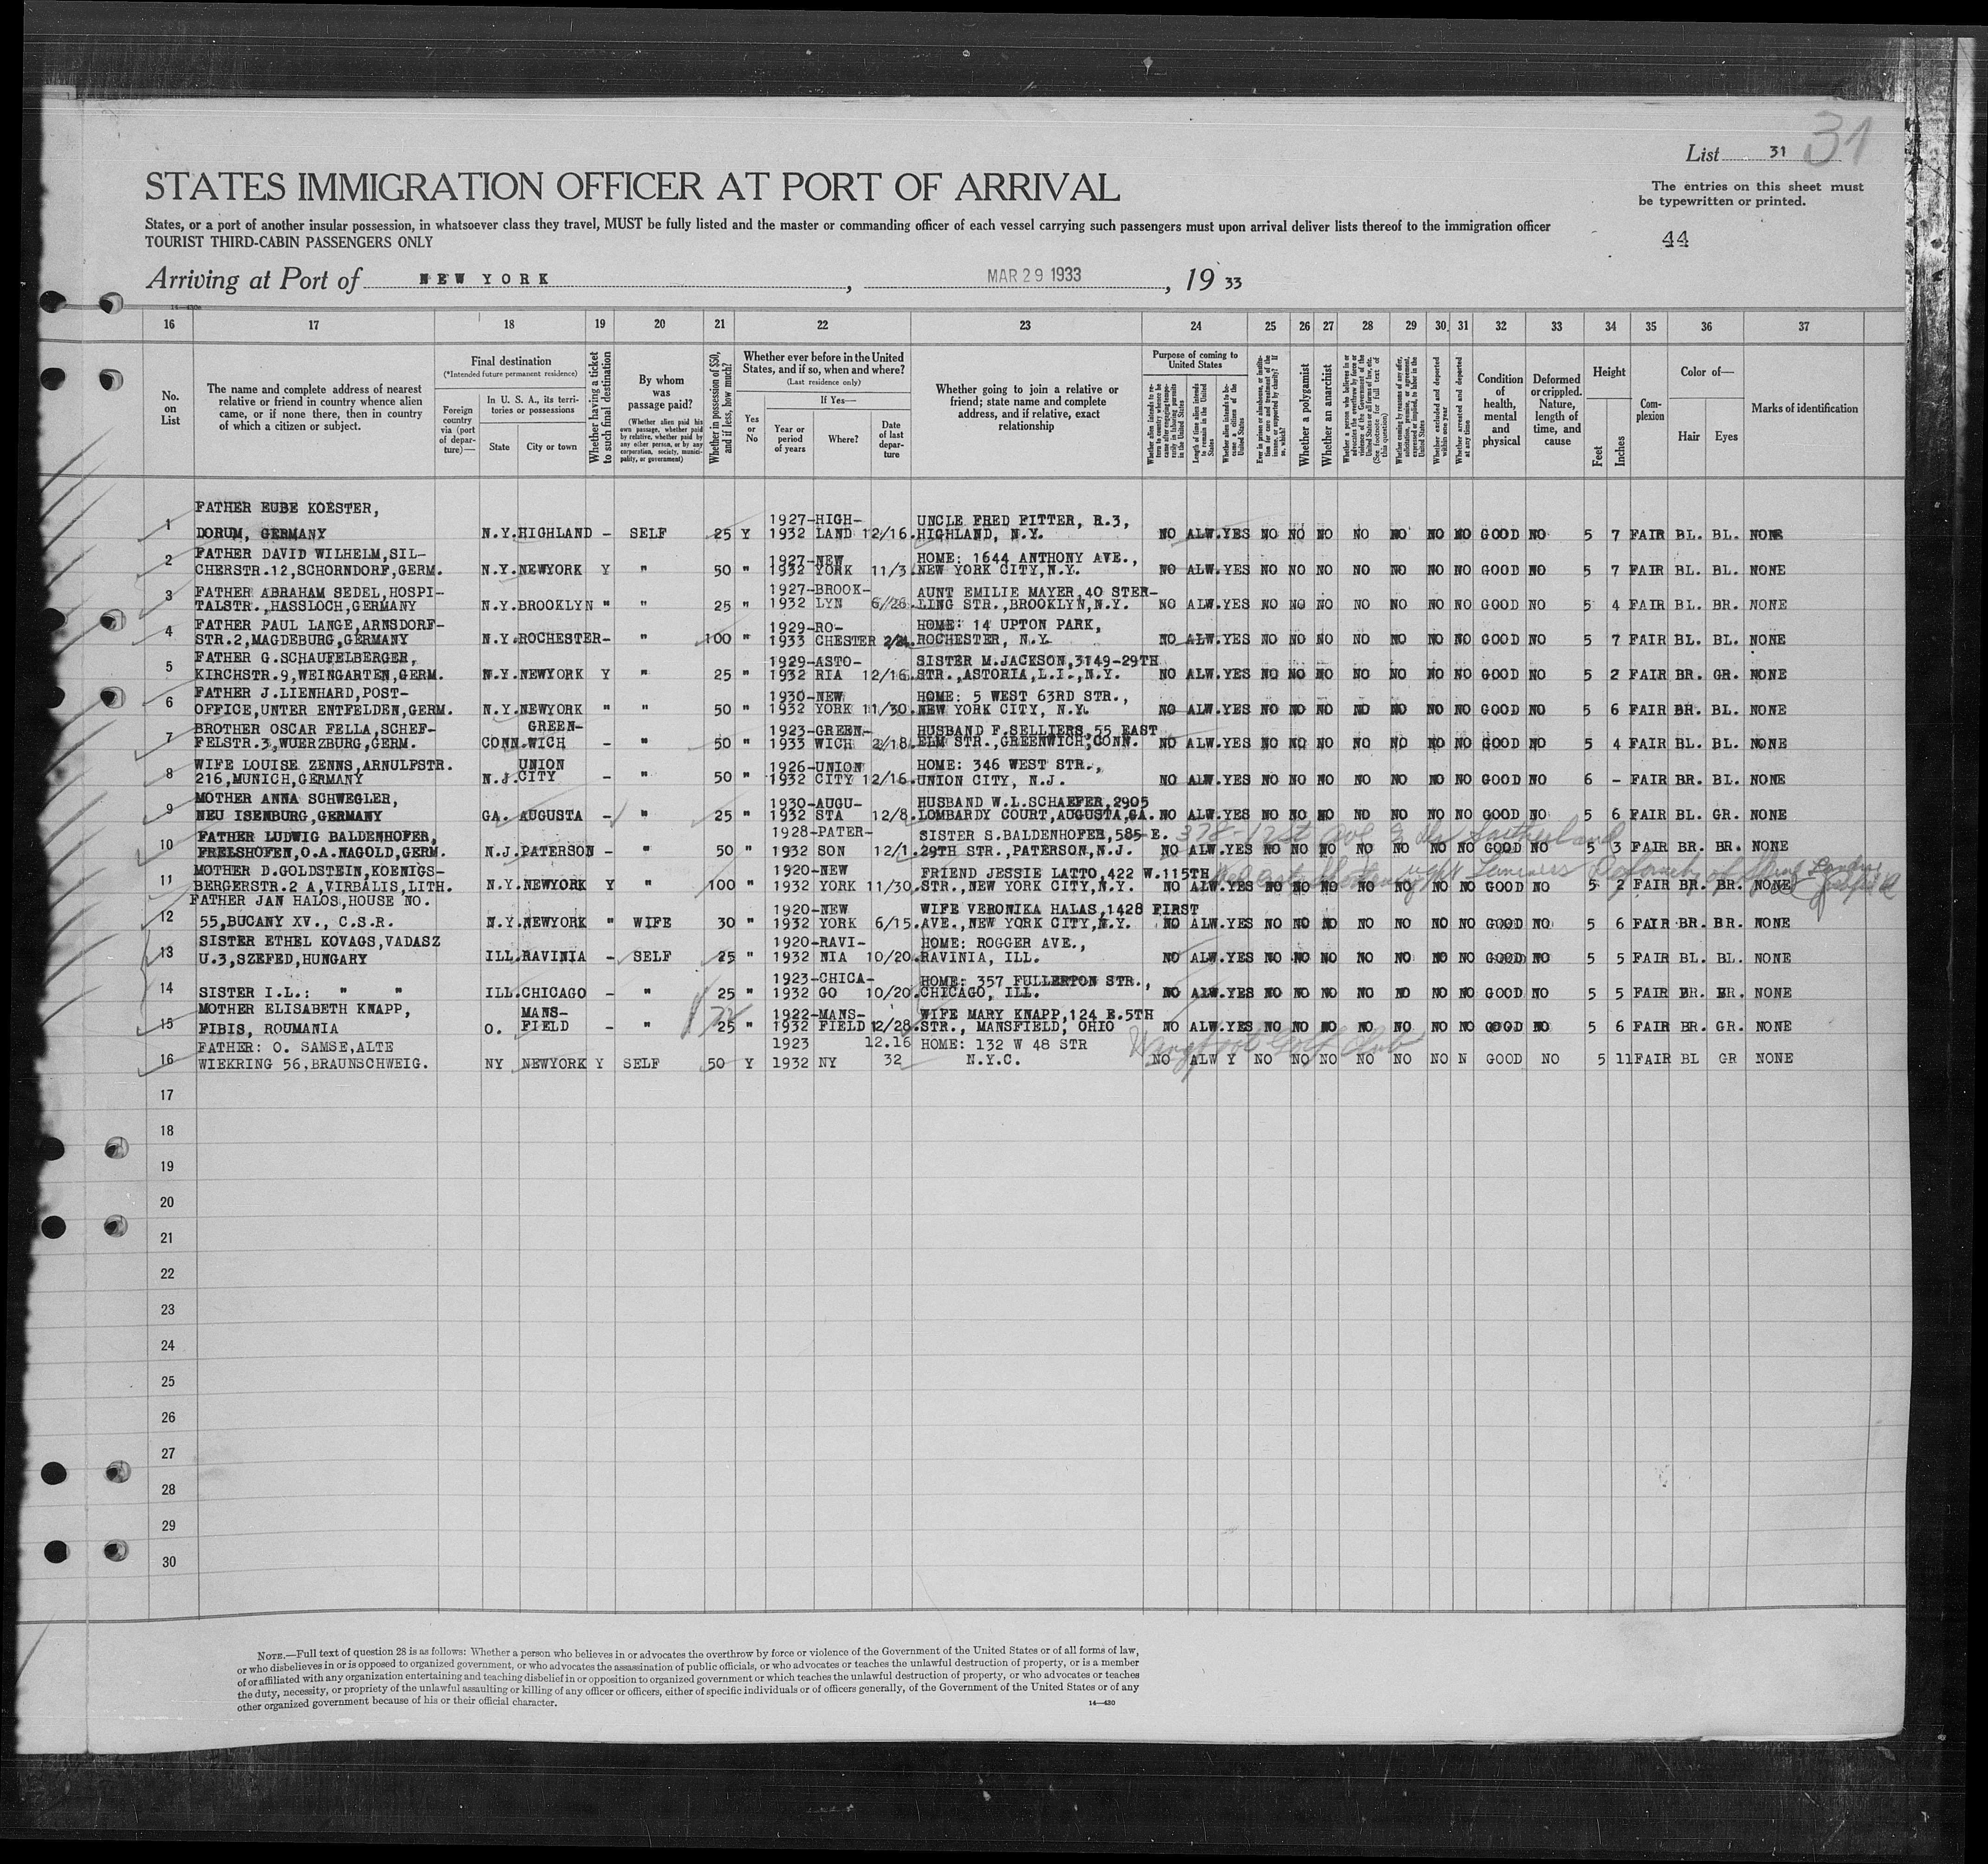 List 31 31
STATES IMMIGRATION OFFICER AT PORT OF ARRIVAL
The entries on this sheet must
be typewritten or printed.
States, or a port of another insular possession, in whatsoever class they travel, MUST be fully listed and the master or commanding officer of each vessel carrying such passengers must upon arrival deliver lists thereof to the immigration officer
TOURIST THIRD-CABIN PASSENGERS ONLY
44
Arriving at Port of NEW YORK, MAR 29 1933, 19 33
16 17 18 19 20 21 22 23 24 25 26 27 28 29 30 31 32 33 34 35 36 37
No. on List
The name and complete address of nearest relative or friend in country whence alien came, or if none there, then in country of which a citizen or subject.
Final destination
(*Intended future permanent residence)
Foreign country via (port of departure)—
In U. S. A., its territories or possessions
State
City or town
Whether having a ticket to such final destination
By whom was passage paid?
(Whether alien paid his own passage, whether paid by relative, whether paid by any other person, or by any corporation, society, municipality, or government)
Whether in possession of $50, and if less, how much?
Whether ever before in the United States, and if so, when and where?
(Last residence only)
Yes or No
If Yes—
Year or period of years
Where?
Date of last departure
Whether going to join a relative or friend; state name and complete address, and if relative, exact relationship
Purpose of coming to United States
Whether alien intends to return to country whence he came after engaging temporarily in laboring pursuits in the United States
Length of time alien intends to remain in the United States
Whether alien intends to become a citizen of the United States
Ever in prison or almshouse, or institution for care and treatment of the insane, or supported by charity? If so, which?
Whether a polygamist
Whether an anarchist
Whether a person who believes in or advocates the overthrow by force or violence of the Government of the United States or all forms of law, etc. (See footnote for full text of this question)
Whether coming by reasons of any offer, solicitation, promise, or agreement, expressed or implied, to labor in the United States
Whether excluded and deported within one year
Whether arrested and deported at any time
Condition of health, mental and physical
Deformed or crippled. Nature, length of time, and cause
Height
Feet
Inches
Complexion
Color of—
Hair
Eyes
Marks of identification
FATHER EUBE KOESTER, 1927-HIGH- UNCLE FRED FITTER, R.3,
1 DORUM, GERMANY N.Y. HIGHLAND - SELF 25 Y 1932 LAND 12/16. HIGHLAND, N.Y. NO ALW. YES NO NO NO NO NO NO NO GOOD NO 5 7 FAIR BL. BL. NONE
FATHER DAVID WILHELM,SIL- 1927-NEW HOME: 1644 ANTHONY AVE.,
2 CHERSTR.12,SCHORNDORF,GERM. N.Y. NEWYORK Y " 50 " 1932 YORK 11/3. NEW YORK CITY,N.Y. NO ALW. YES NO NO NO NO NO NO NO GOOD NO 5 7 FAIR BL. BL. NONE
FATHER ABRAHAM SEDEL,HOSPI- 1927-BROOK- AUNT EMILIE MAYER,40 STER-
3 TALSTR.,HASSLOCH,GERMANY N.Y. BROOKLYN " " 25 " 1932 LYN 6/26. LING STR.,BROOKLYN,N.Y. NO ALW. YES NO NO NO NO NO NO NO GOOD NO 5 4 FAIR BL. BR. NONE
FATHER PAUL LANGE,ARNSDORF- 1929-RO- HOME: 14 UPTON PARK,
4 STR.2,MAGDEBURG,GERMANY N.Y. ROCHESTER- " 100 " 1933 CHESTER ROCHESTER, N.Y. NO ALW. YES NO NO NO NO NO NO NO GOOD NO 5 7 FAIR BL. BL. NONE
FATHER G.SCHAUFELBERGER, 1929-ASTO- SISTER M.JACKSON,3149-29TH
5 KIRCHSTR.9,WEINGARTEN,GERM. N.Y. NEWYORK Y " 25 " 1932 RIA 12/16. STR.,ASTORIA,L.I.,N.Y. NO ALW. YES NO NO NO NO NO NO NO GOOD NO 5 2 FAIR BR. GR. NONE
FATHER J.LIENHARD,POST- 1930-NEW HOME: 5 WEST 63RD STR.,
6 OFFICE,UNTER ENTFELDEN,GERM. N.Y. NEWYORK " " 50 " 1932 YORK 11/30. NEW YORK CITY, N.Y. NO ALW. YES NO NO NO NO NO NO NO GOOD NO 5 6 FAIR BR. BL. NONE
BROTHER OSCAR FELLA,SCHEF- GREEN- 1923-GREEN- HUSBAND F.SELLIERS,55 EAST
7 FELSTR.3,WUERZBURG,GERM. CONN. WICH - " 50 " 1933 WICH 2/18. ELM STR.,GREENWICH,CONN. NO ALW. YES NO NO NO NO NO NO NO GOOD NO 5 4 FAIR BL. BL. NONE
WIFE LOUISE ZENNS,ARNULFSTR. UNION 1926-UNION HOME: 346 WEST STR.,
8 216,MUNICH,GERMANY N.J. CITY - " 50 " 1932 CITY 12/16. UNION CITY, N.J. NO ALW. YES NO NO NO NO NO NO NO GOOD NO 6 - FAIR BR. BL. NONE
MOTHER ANNA SCHWEGLER, 1930-AUGU- HUSBAND W.L.SCHAEFER,2905
9 NEU ISENBURG,GERMANY GA. AUGUSTA - " 25 " 1932 STA 12/8. LOMBARDY COURT,AUGUSTA,GA. NO ALW. YES NO NO NO NO NO NO NO GOOD NO 5 6 FAIR BL. GR. NONE
FATHER LUDWIG BALDENHOFER, 1928-PATER- SISTER S.BALDENHOFER,585 E. 378-12st ave
10 FRELSHOFEN,O.A.NAGOLD,GERM. N.J. PATERSON - " 50 " 1932 SON 12/1. 29TH STR.,PATERSON,N.J. NO ALW. YES NO NO NO NO NO NO NO GOOD NO 5 3 FAIR BR. BR. NONE
MOTHER D.GOLDSTEIN,KOENIGS- 1920-NEW FRIEND JESSIE LATTO,422 W.115TH
11 BERGERSTR.2 A,VIRBALIS,LITH. N.Y. NEWYORK Y " 100 " 1932 YORK 11/30. STR.,NEW YORK CITY,N.Y. NO ALW. YES NO NO NO NO NO NO NO GOOD NO 5 2 FAIR BR. BR. NONE
FATHER JAN HALOS,HOUSE NO. 1920-NEW WIFE VERONIKA HALAS,1428 FIRST
12 55,BUCANY XV., C.S.R. N.Y. NEWYORK " WIFE 30 " 1932 YORK 6/15. AVE.,NEW YORK CITY,N.Y. NO ALW. YES NO NO NO NO NO NO NO GOOD NO 5 6 FAIR BR. BR. NONE
SISTER ETHEL KOVAGS,VADASZ 1920-RAVI- HOME: ROGGER AVE.,
13 U.3,SZEFED,HUNGARY ILL. RAVINIA - SELF 25 " 1932 NIA 10/20. RAVINIA, ILL. NO ALW. YES NO NO NO NO NO NO NO GOOD NO 5 5 FAIR BL. BL. NONE
1923-CHICA- HOME: 357 FULLERTON STR.,
14 SISTER I.L.: " " ILL. CHICAGO - " 25 " 1932 GO 10/20. CHICAGO, ILL. NO ALW. YES NO NO NO NO NO NO NO GOOD NO 5 5 FAIR BR. BR. NONE
MOTHER ELISABETH KNAPP, MANS- 1922-MANS- WIFE MARY KNAPP,124 E.5TH
15 FIBIS, ROUMANIA O. FIELD - " 25 " 1932 FIELD 12/28. STR., MANSFIELD, OHIO NO ALW. YES NO NO NO NO NO NO NO GOOD NO 5 6 FAIR BR. GR. NONE
FATHER: O. SAMSE,ALTE 1923 12.16 HOME: 132 W 48 STR Golf Club
16 WIEKRING 56,BRAUNSCHWEIG. NY NEWYORK Y SELF 50 Y 1932 NY 32 N.Y.C. NO ALW Y NO NO NO NO NO NO N GOOD NO 5 11 FAIR BL GR NONE
17
18
19
20
21
22
23
24
25
26
27
28
29
30
NOTE.—Full text of question 28 is as follows: Whether a person who believes in or advocates the overthrow by force or violence of the Government of the United States or of all forms of law,
or who disbelieves in or is opposed to organized government, or who advocates the assassination of public officials, or who advocates or teaches the unlawful destruction of property, or is a member
of or affiliated with any organization entertaining and teaching disbelief in or opposition to organized government or which teaches the unlawful destruction of property, or who advocates or teaches
the duty, necessity, or propriety of the unlawful assaulting or killing of any officer or officers, either of specific individuals or of officers generally, of the Government of the United States or of any
other organized government because of his or their official character.
14—430